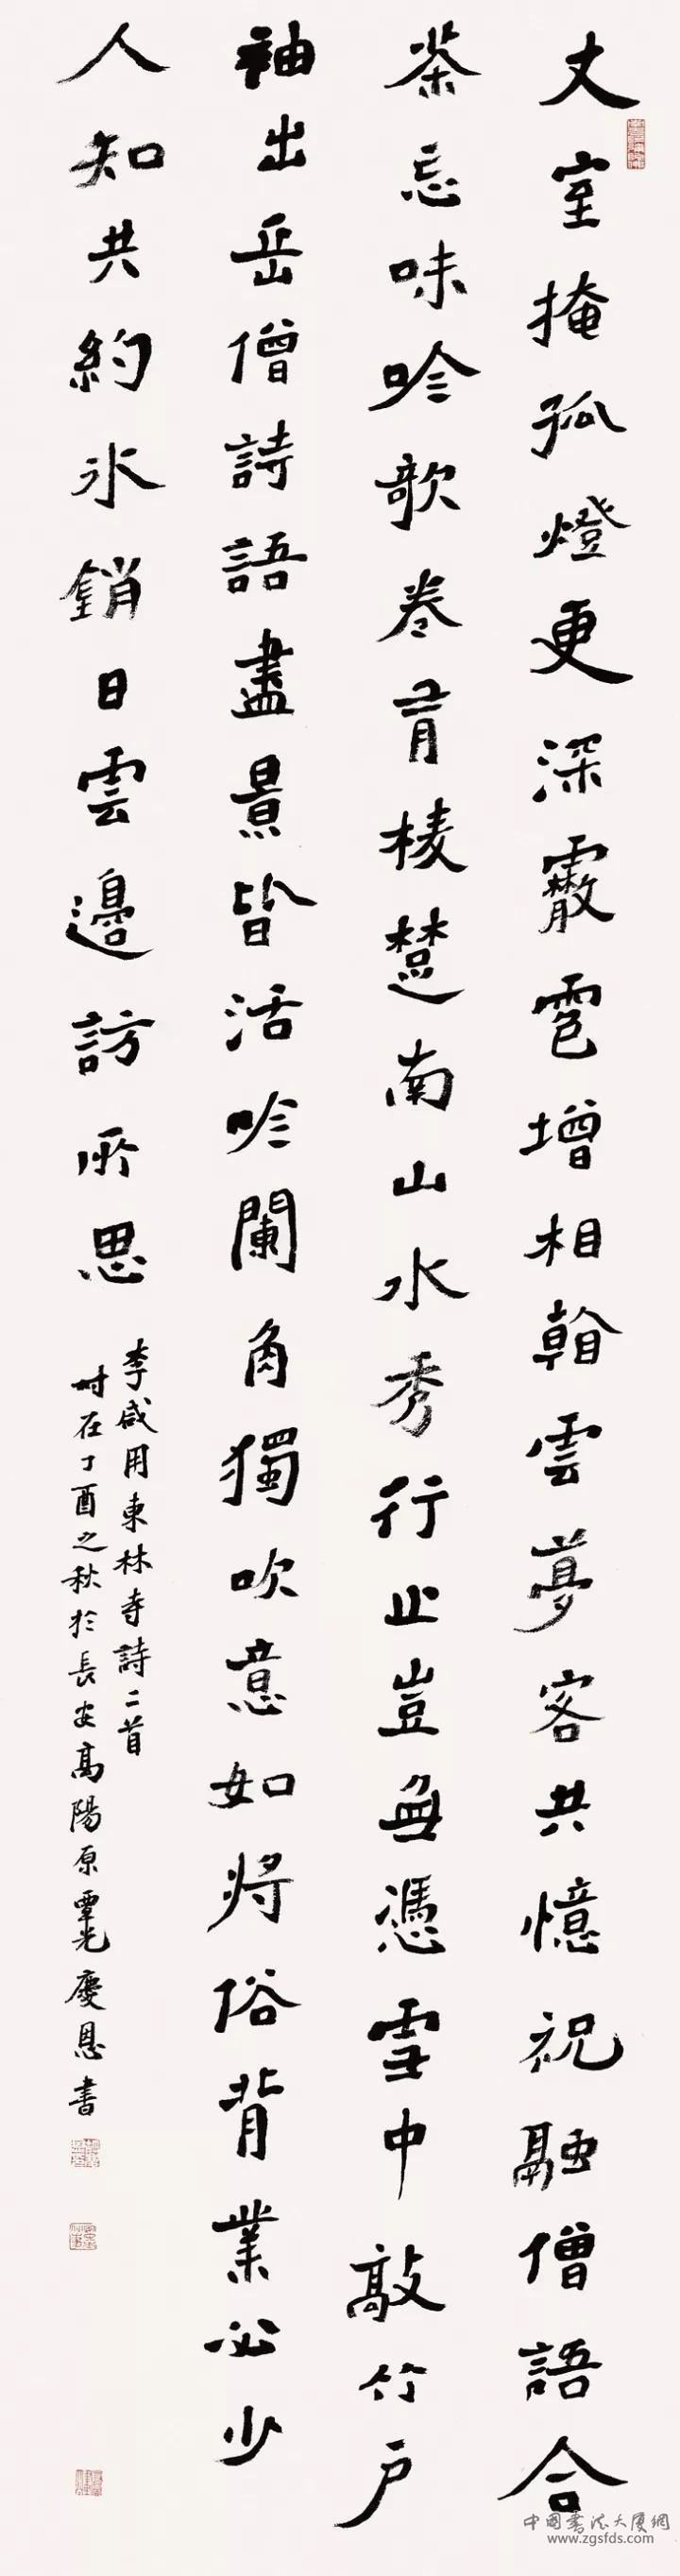 丈室掩孤燈更深霰雹增相看雲夢客共憶祝融僧語合
茶忘味吟欹卷有棱楚南山水秀行止豈無憑雪中敲竹户
袖出岳僧詩語盡景皆活吟闌角獨吹意如將俗背業必少
人知共約冰銷日雲邊訪所思
李咸用東林寺詩二首
时在丁酉之秋於長安高陽原慶恩書
中国書法大厦網
www.zgsfds.com